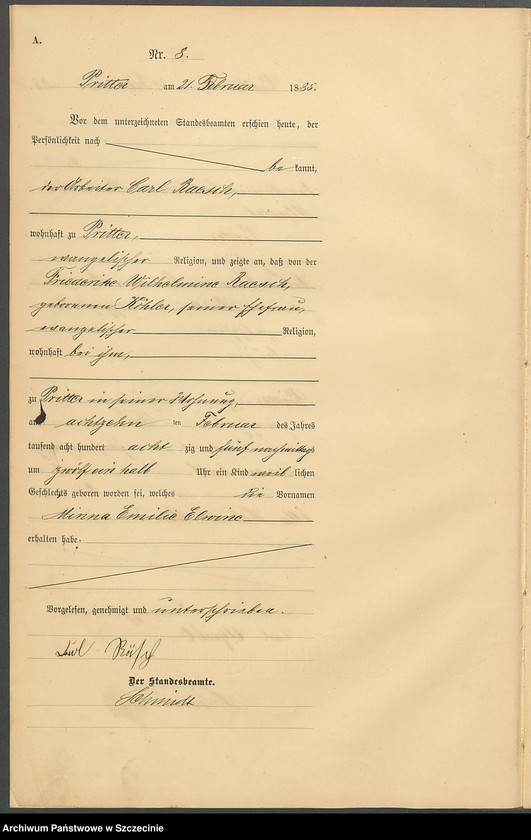 A.
Nr. 8.
Pritter am 21. Februar 1885.
Vor dem unterzeichneten Standesbeamten erschien heute, der
Persönlichkeit nach
be kannt,
der Arbeiter Carl Raesch,
wohnhaft zu Pritter,
evangelischer Religion, und zeigte an, daß von der
Friederike Wilhelmine Raesch,
geborenen Köhler, seiner Ehefrau,
evangelischer Religion,
wohnhaft bei ihm,
zu Pritter in seiner Wohnung,
am achtzehn ten Februar des Jahres
tausend acht hundert acht zig und fünf nachmittags
um zwölf ein halb Uhr ein Kind weib lichen
Geschlechts geboren worden sei, welches die Vornamen
Minna Emilie Elwine
erhalten habe.
Vorgelesen, genehmigt und unterschrieben.
Karl Räsch
Der Standesbeamte.
Schmidt
Archiwum Państwowe w Szczecinie